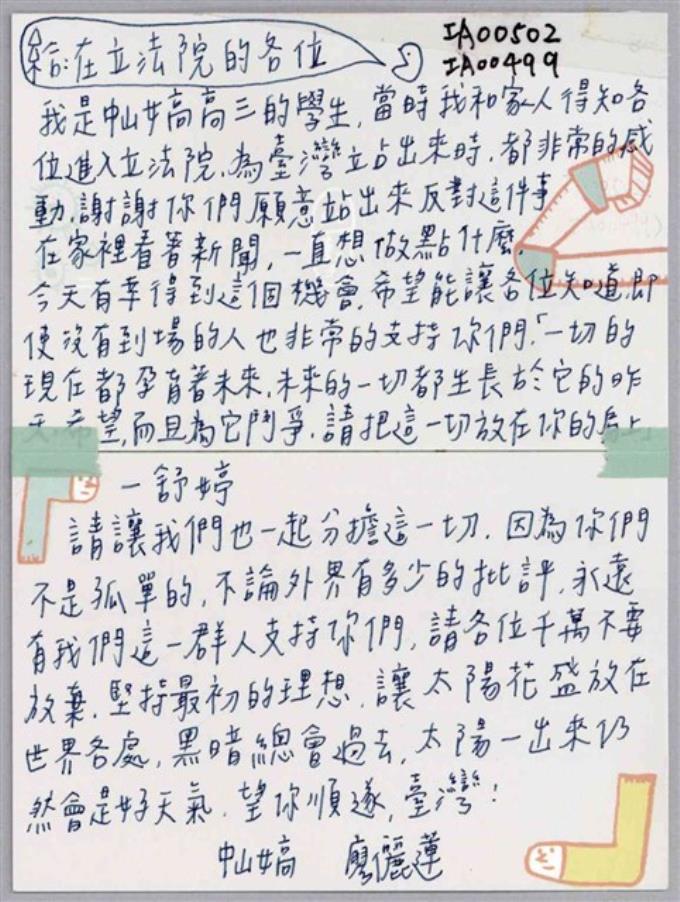 給:在立法院的各位
IA00502
IA00499
我是中山女高高三的學生,當時我和家人得知各
位進入立法院,為臺灣立占出來時,都非常的感
動,謝謝你們願意站出來反對這件事
在家裡看著新聞,一直想做點什麼,
今天有幸得到這個機會,希望能讓各位知道,即
使沒有到場的人也非常的支持你們,「一切的
現在都孕育著未來,未來的一切都生長於它的昨
天,希望,而且為它鬥爭,請把這一切放在你的肩上
—舒婷
請讓我們也一起分擔這一切,因為你們
不是孤單的,不論外界有多少的批評,永遠
有我們這一群人支持你們,請各位千萬不要
放棄,堅持最初的理想,讓太陽花盛放在
世界各處,黑暗總會過去,太陽一出來仍
然會是好天氣,望你順遂,臺灣!
中山女高 廖儷蓮